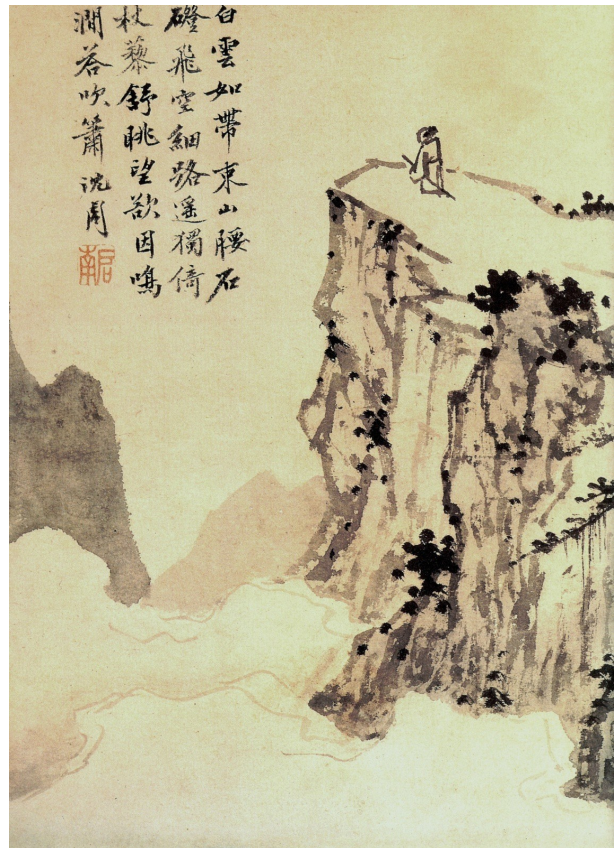 白雲如帶束山腰石
磴飛空細路遙獨倚
杖藜舒眺望欲因鳴
澗荅吹簫沈周
启南